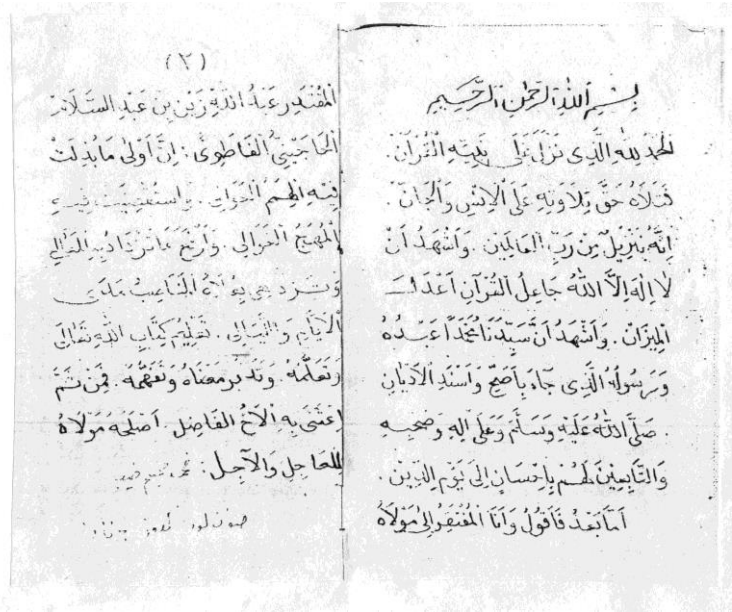 بِسْمِ اللهِ الرَّحْمٰنِ الرَّحِيْمِ
الحمد للهِ الَّذِى نَزَّلَ عَلَى نَبِيِّهِ الْقُرْآنَ.
فَتَلَاهُ حَقَّ تِلَاوَتِهِ عَلَى الْاِنْسِ وَالْجَانِّ.
اِنَّهُ تَنْزِيْلٌ مِنْ رَبِّ الْعَالَمِيْنَ. وَاَشْهَدُ اَنْ
لَا اِلٰهَ اِلَّا اللهُ جَاعِلُ الْقُرْآنِ اَعْدَلَ
الْمِيْزَانِ. وَاَشْهَدُ اَنَّ سَيِّدَنَا مُحَمَّدًا عَبْدُهُ
وَرَسُوْلُهُ الَّذِى جَاءَ بِاَصَحِّ وَاَسْنَدِ الْاَدْيَانِ
. صَلَّى اللهُ عَلَيْهِ وَسَلَّمَ وَعَلَى اٰلِهِ وَصَحْبِهِ
وَالتَّابِعِيْنَ لَهُمْ بِاِحْسَانٍ اِلَى يَوْمِ الدِّيْنِ.
اَمَّا بَعْدُ فَاَقُوْلُ وَاَنَا الْمُفْتَقِرُ اِلَى مَوْلَاهُ
(٢)
الْمُقْتَدِرِ عَبْدُ اللهِ زَيْن بن عَبْد السَّلَام
الحَاجَيْنِيُّ الْفَاطَوِىُّ: اِنَّ اَوْلَى مَا بُذِلَتْ
فِيْهِ الْهِمَمُ الْعَوَالِي.
الْمُهَجُ الْغَوَالِي.
الْاَيَّامِ وَاللَّيَالِى. تَعْلِيْمُ كِتَابِ اللهِ تَعَالَى
وَتَعَلُّمُهُ. وَتَدَبُّرُ مَعْنَاهُ وَتَفَهُّمُهُ. فَمِنْ ثَمَّ
اِعْتَنَى بِهِ الْاَخُ الْفَاضِلُ. اَصْلَحَهُ مَوْلَاهُ
لِلْعَاجِلِ وَالْآجِلِ.